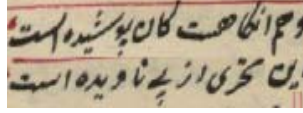 وهم انکاهست کان پوشیده است
این نحری از پے نادیده است